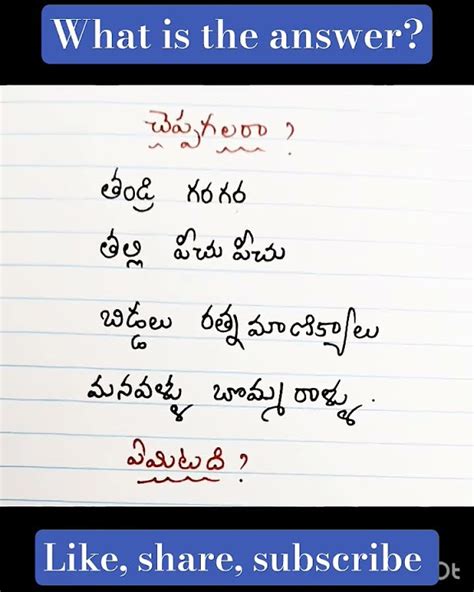 What is the answer?
చెప్పగలరా ?
తండ్రి గరగర
తల్లి పీచు పీచు
బిడ్డలు రత్న మాణిక్యాలు
మనవళ్ళు బొమ్మ రాళ్ళు.
ఏమిటది ?
Like, share, subscribe